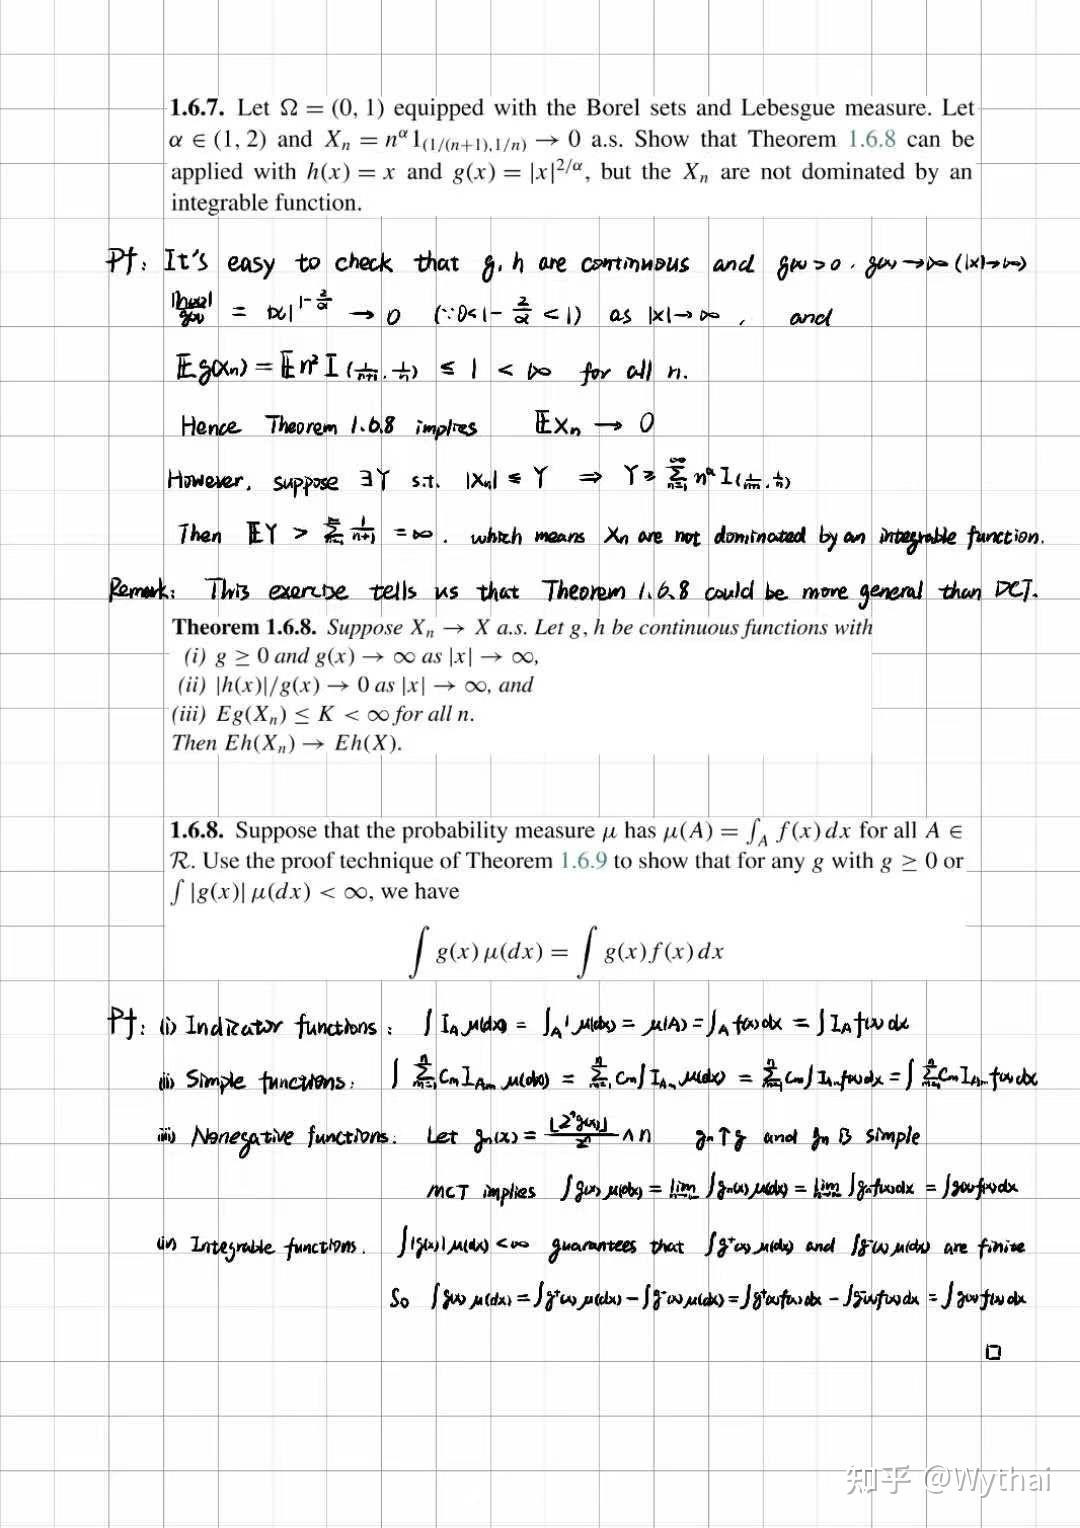 1.6.7. Let Ω = (0, 1) equipped with the Borel sets and Lebesgue measure. Let
α ∈ (1, 2) and Xₙ = n^α 1_(1/(n+1),1/n) → 0 a.s. Show that Theorem 1.6.8 can be
applied with h(x) = x and g(x) = |x|^{2/α}, but the Xₙ are not dominated by an
integrable function.
Pf: It's easy to check that g, h are continuous and g(x) > 0, g(x) → ∞ (|x| → ∞)
|h(x)|/g(x) = |x|^{1-2/α} → 0 (∵ 0 < 1 - 2/α < 1) as |x| → ∞, and
𝔼g(Xₙ) = 𝔼n² I(1/(n+1), 1/n) ≤ 1 < ∞ for all n.
Hence Theorem 1.6.8 implies 𝔼Xₙ → 0
However, suppose ∃Y s.t. |Xₙ| ≤ Y ⇒ Y ≥ ∑_{n=1}^∞ n^α I(1/(n+1), 1/n)
Then 𝔼Y > ∑_{n=1}^∞ 1/(n+1) = ∞. which means Xₙ are not dominated by an integrable function.
Remark: This exercise tells us that Theorem 1.6.8 could be more general than DCT.
Theorem 1.6.8. Suppose Xₙ → X a.s. Let g, h be continuous functions with
(i) g ≥ 0 and g(x) → ∞ as |x| → ∞,
(ii) |h(x)|/g(x) → 0 as |x| → ∞, and
(iii) Eg(Xₙ) ≤ K < ∞ for all n.
Then Eh(Xₙ) → Eh(X).
1.6.8. Suppose that the probability measure μ has μ(A) = ∫_A f(x) dx for all A ∈
ℛ. Use the proof technique of Theorem 1.6.9 to show that for any g with g ≥ 0 or
∫ |g(x)| μ(dx) < ∞, we have
∫ g(x) μ(dx) = ∫ g(x) f(x) dx
Pf: (i) Indicator functions: ∫ I_A μ(dx) = ∫_A 1 μ(dx) = μ(A) = ∫_A f(x)dx = ∫ I_A f(x) dx
(ii) Simple functions: ∫ ∑_{m=1}^n Cₘ I_{Aₘ} μ(dx) = ∑_{m=1}^n Cₘ ∫ I_{Aₘ} μ(dx) = ∑_{m=1}^n Cₘ ∫ I_{Aₘ} f(x)dx = ∫ ∑_{m=1}^n Cₘ I_{Aₘ} f(x)dx
(iii) Nonegative functions: Let gₙ(x) = ⌊2ⁿg(x)⌋/2ⁿ ∧ n gₙ ↑ g and gₙ is simple
MCT implies ∫ g(x) μ(dx) = lim ∫ gₙ(x) μ(dx) = lim ∫ gₙ f(x)dx = ∫ g(x)f(x)dx
(iv) Integrable functions. ∫ |g(x)| μ(dx) < ∞ guarantees that ∫ g⁺(x) μ(dx) and ∫ g⁻(x) μ(dx) are finite
So ∫ g(x) μ(dx) = ∫ g⁺(x) μ(dx) − ∫ g⁻(x) μ(dx) = ∫ g⁺(x)f(x)dx − ∫ g⁻(x)f(x)dx = ∫ g(x)f(x) dx
□
知乎 @Wythai